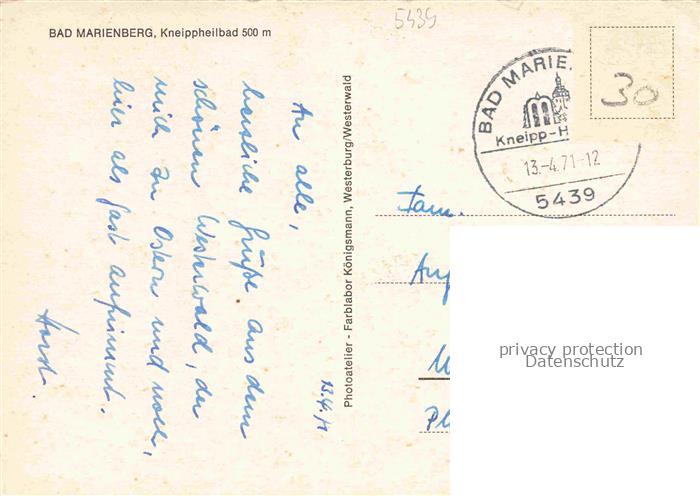 BAD MARIENBERG, Kneippheilbad 500 m
5439
An alle,
herzliche Grüße aus dem
schönen Westerwald, der
mich zu Ostern und noch,
hier als Gast aufnimmt.
Horst.
13.4.71
Photoatelier - Farblabor Königsmann, Westerburg/Westerwald
BAD MARIE
Kneipp-H
13.-4.71-12
5439
30
Fam.
privacy protection
Datenschutz